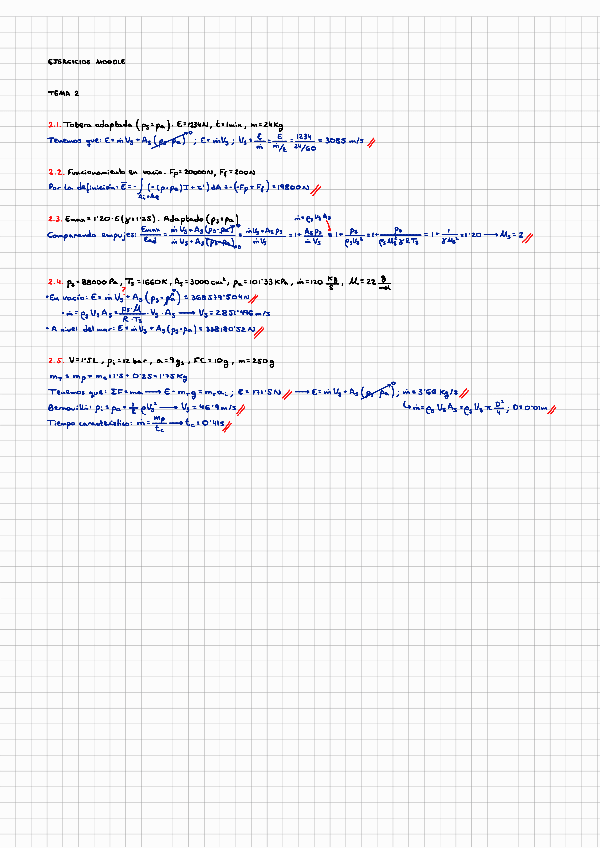 EJERCICIOS MOODLE
TEMA 2
2.1. Tobera adaptada (ps=pa). E=1234N, t=1min, m=24Kg
Tenemos que: E=ṁVs+As(ps-pa)→0 ; E=ṁVs ; Vs=E/ṁ=E/(m/t)=1234/(24/60)=3085 m/s
2.2. Funcionamiento en vacío. Fp=20000N, Ff=200N
Por la definición: E=-∫(-(p-pa)I+τ')dA=-(-Fp+Ff)=19800N
2.3. Emax=1'20·E(γ=1'25). Adaptado (ps=pa)
ṁ=ρsVsAs
Comparando empujes: Emax/Ead=(ṁVs+As(ps-pa)→0)/(ṁVs+As(ps-pa)→0)=(ṁVs+Asps)/(ṁVs)=1+(Asps)/(ṁVs)=1+ps/(ρsVs²)=1+ps/(ρsMs²γRTs)=1+1/(γMs²)=1'20→Ms=2
2.4. ps=88000Pa, Ts=1660K, As=3000cm², pa=101'33KPa, ṁ=120 Kg/s, M=22 g/mol
•En vacío: E=ṁVs+As(ps-pa→0)=368579'504N
•ṁ=ρsVsAs=(ps·M)/(R·Ts)·Vs·As→Vs=2851'496m/s
•A nivel del mar: E=ṁVs+As(ps-pa)=338180'52N
2.5. V=1'5L, pi=12bar, a=9gs, FC=10g, m=250g
mT=mp+ms=1'5+0'25=1'75Kg
Tenemos que: ΣF=ma→E-mTg=mTai ; E=171'5N→E=ṁVs+As(ps-pa)→0 ; ṁ=3'68Kg/s
↳ṁ=ρsVsAs=ρsVsπD²/4 ; D=0'01m
Bernouilli: pi=pa+½ρVs²→Vs=46'9m/s
Tiempo característico: ṁ=mp/tc→tc=0'41s